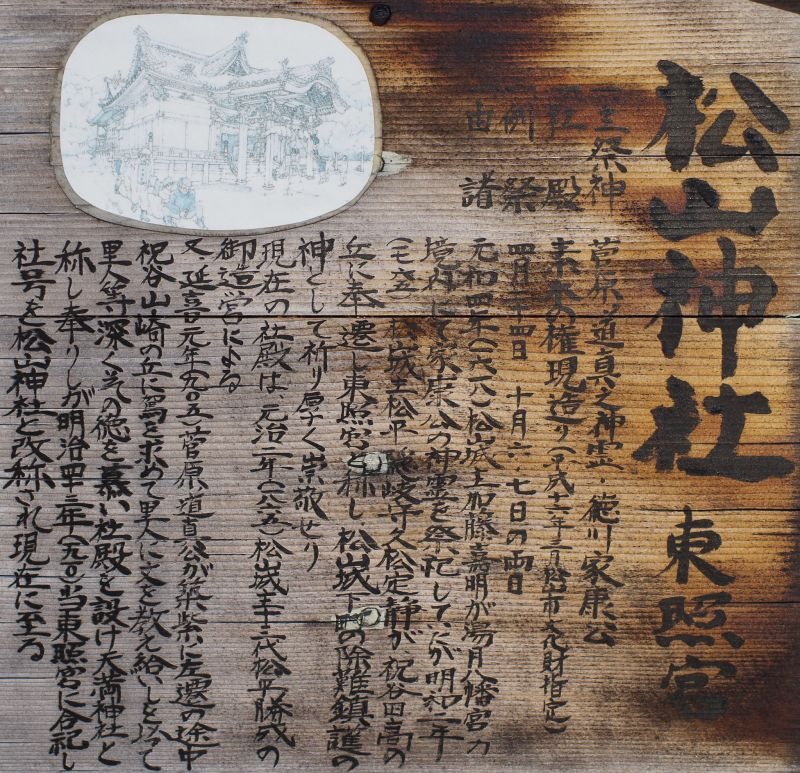 松山神社 東照宮
一主祭神 菅原道真之神霊・徳川家康公
一社殿 素木の権現造り(平成十二年二月松山市文化財指定)
一例祭 四月二十四日 十月六、七日の両日
一由諸 元和四年(一六一八)松山城主加藤嘉明が湯月八幡宮の
境内にて家康公の神霊を祭祀していたが明和二年
(一七六五)松山城主松平隠岐守久松定静が、祝谷田高の
丘に奉遷し東照宮と称し、松山城下町の除難鎮護の
神として祈り厚く崇敬せり
現在の社殿は、元治二年(一八六五)松山城主十三代松平勝成の
御造営による
又、延喜元年(九〇五)菅原道真公が築紫に左遷の途中
祝谷山崎の丘に駕を求めて里人に文を教え給いしを以て
里人等深くその徳を慕い社殿を設け天満神社と
称し奉りしが明治四十三年(一九一〇)当東照宮に合祀し
社号を松山神社と改称され現在に至る